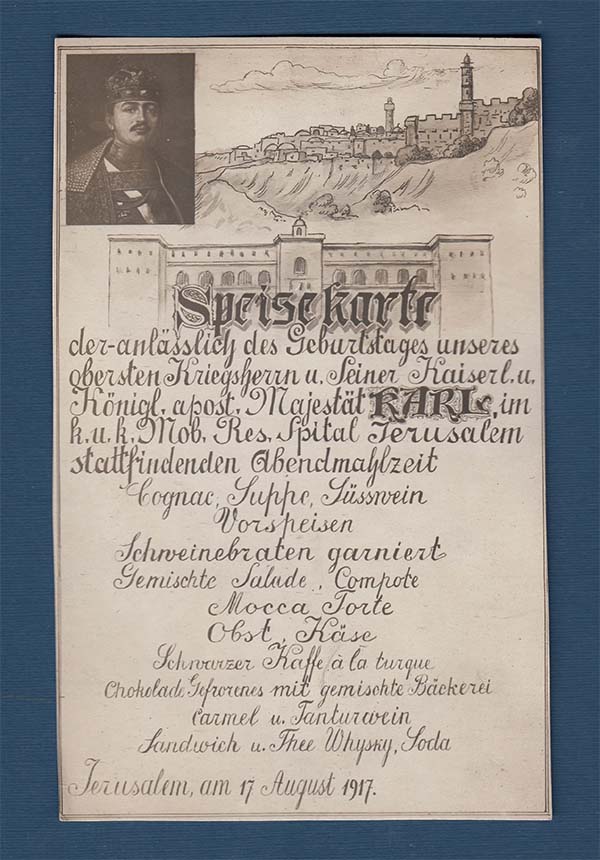 Speisekarte
der anlässlich des Geburtstages unseres
obersten Kriegsherrn u. Seiner Kaiserl. u.
Königl. apost. Majestät KARL, im
k. u. k. Mob. Res. Spital Jerusalem
stattfindenden Abendmahlzeit
Cognac, Suppe, Süsswein
Vorspeisen
Schweinebraten garniert
Gemischte Salade, Compote
Mocca Torte
Obst, Käse
Schwarzer Kaffe à la turque
Chokolade Gefrorenes mit gemischte Bäckerei
Carmel u. Tanturwein
Sandwich u. Thee Whysky, Soda
Jerusalem, am 17 August 1917.